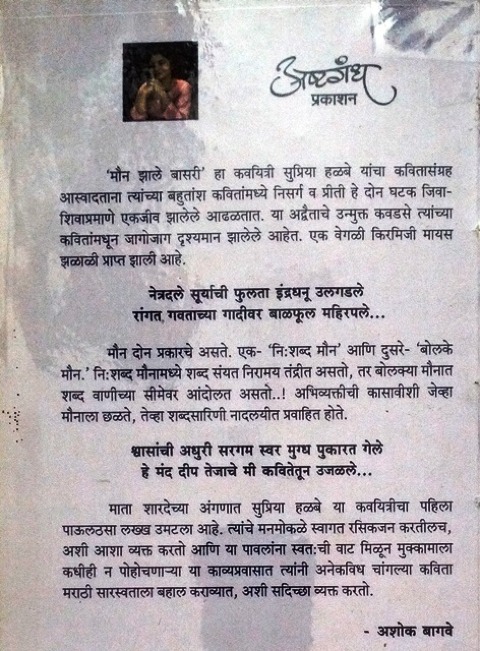 अष्टगंध
प्रकाशन
'मौन झाले बासरी' हा कवयित्री सुप्रिया हळबे यांचा कवितासंग्रह
आस्वादताना त्यांच्या बहुतांश कवितांमध्ये निसर्ग व प्रीती हे दोन घटक जिवा-
शिवाप्रमाणे एकजीव झालेले आढळतात. या अद्वैताचे उन्मुक्त कवडसे त्यांच्या
कवितांमधून जागोजाग दृश्यमान झालेले आहेत. एक वेगळी किरमिजी मायस
झळाळी प्राप्त झाली आहे.
नेत्रदले सूर्याची फुलता इंद्रधनू उलगडले
रांगत गवताच्या गादीवर बाळफूल महिरपले...
मौन दोन प्रकारचे असते. एक- 'नि:शब्द मौन' आणि दुसरे- 'बोलके
मौन.' नि:शब्द मौनामध्ये शब्द संयत निरामय तंद्रीत असतो, तर बोलक्या मौनात
शब्द वाणीच्या सीमेवर आंदोलत असतो..! अभिव्यक्तीची कासावीशी जेव्हा
मौनाला छळते, तेव्हा शब्दसारिणी नादलयीत प्रवाहित होते.
श्वासांची अधुरी सरगम स्वर मुग्ध पुकारत गेले
हे मंद दीप तेजाचे मी कवितेतून उजळले...
माता शारदेच्या अंगणात सुप्रिया हळबे या कवयित्रीचा पहिला
पाऊलठसा लख्ख उमटला आहे. त्यांचे मनमोकळे स्वागत रसिकजन करतीलच,
अशी आशा व्यक्त करतो आणि या पावलांना स्वत:ची वाट मिळून मुक्कामाला
कधीही न पोहोचणाऱ्या या काव्यप्रवासात त्यांनी अनेकविध चांगल्या कविता
मराठी सारस्वताला बहाल कराव्यात, अशी सदिच्छा व्यक्त करतो.
- अशोक बागवे